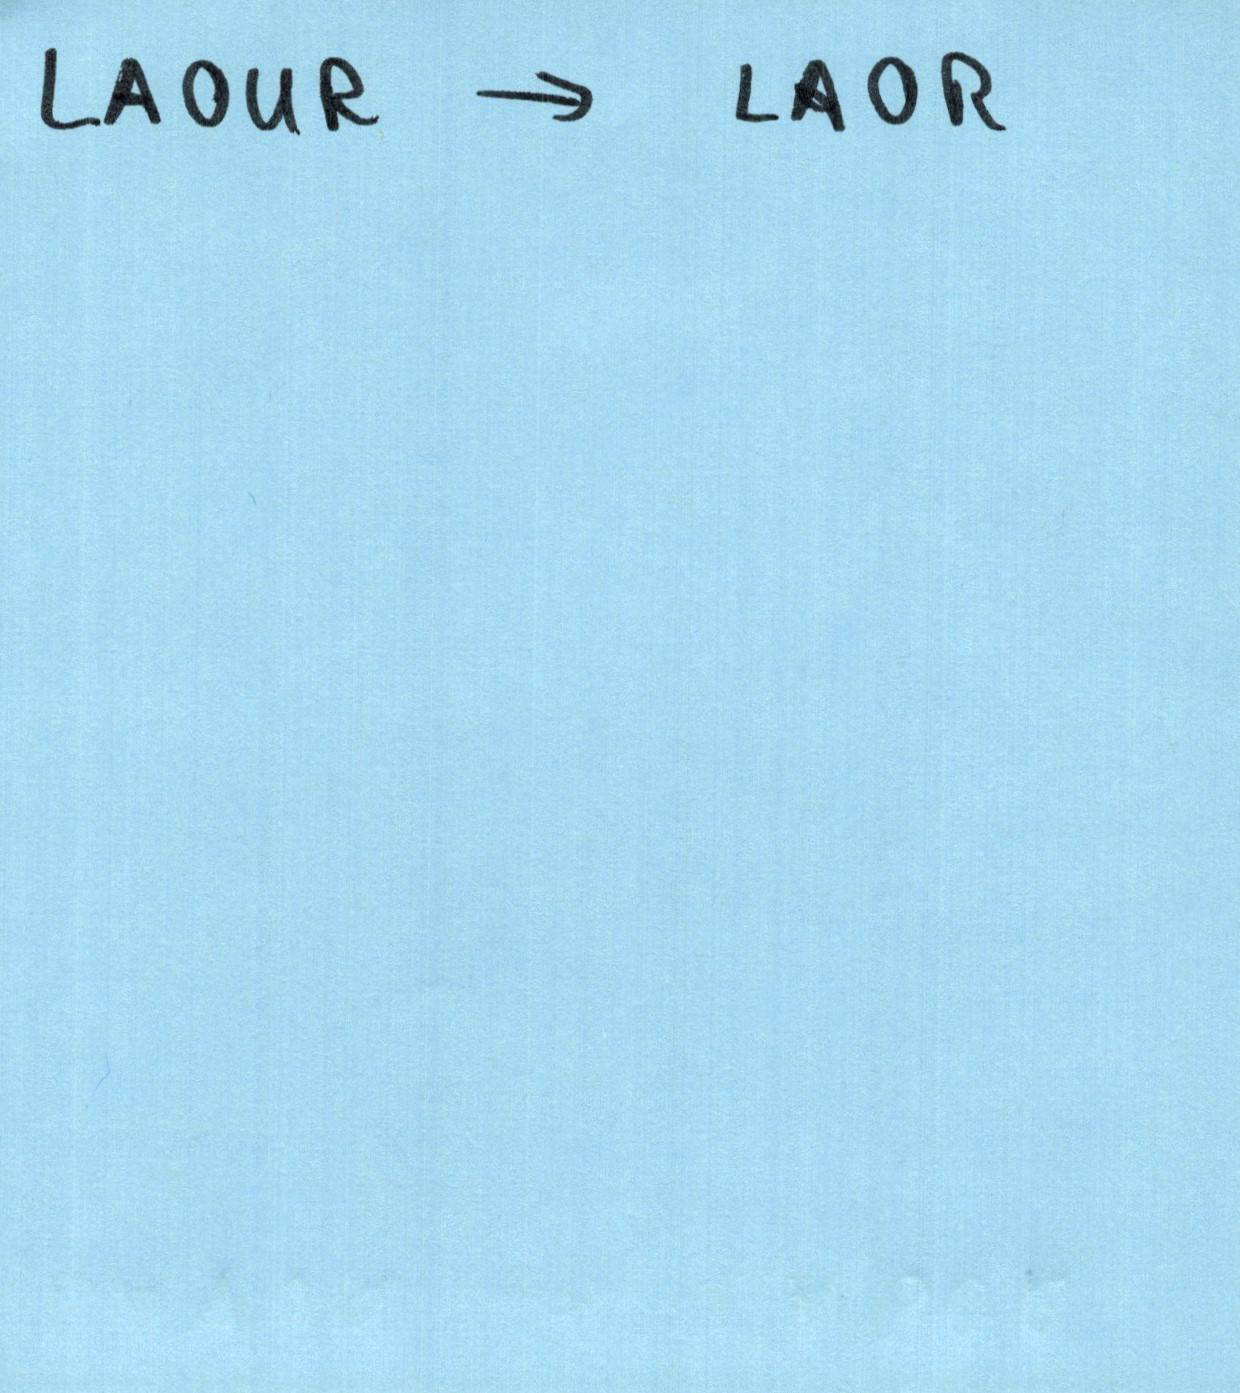 LAOUR → LAOR